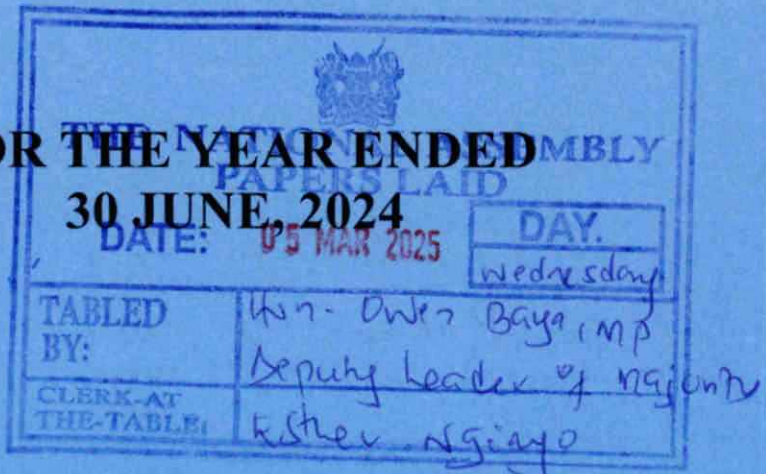 THE NATIONAL ASSEMBLY
OR THE YEAR ENDED
PAPERS LAID
30 JUNE, 2024
DATE: 05 MAR 2025
DAY.
Wednesday
TABLED BY:
Hon. Owen Baya, MP
Deputy Leader of Majority
CLERK-AT THE-TABLE:
Esther Nginyo